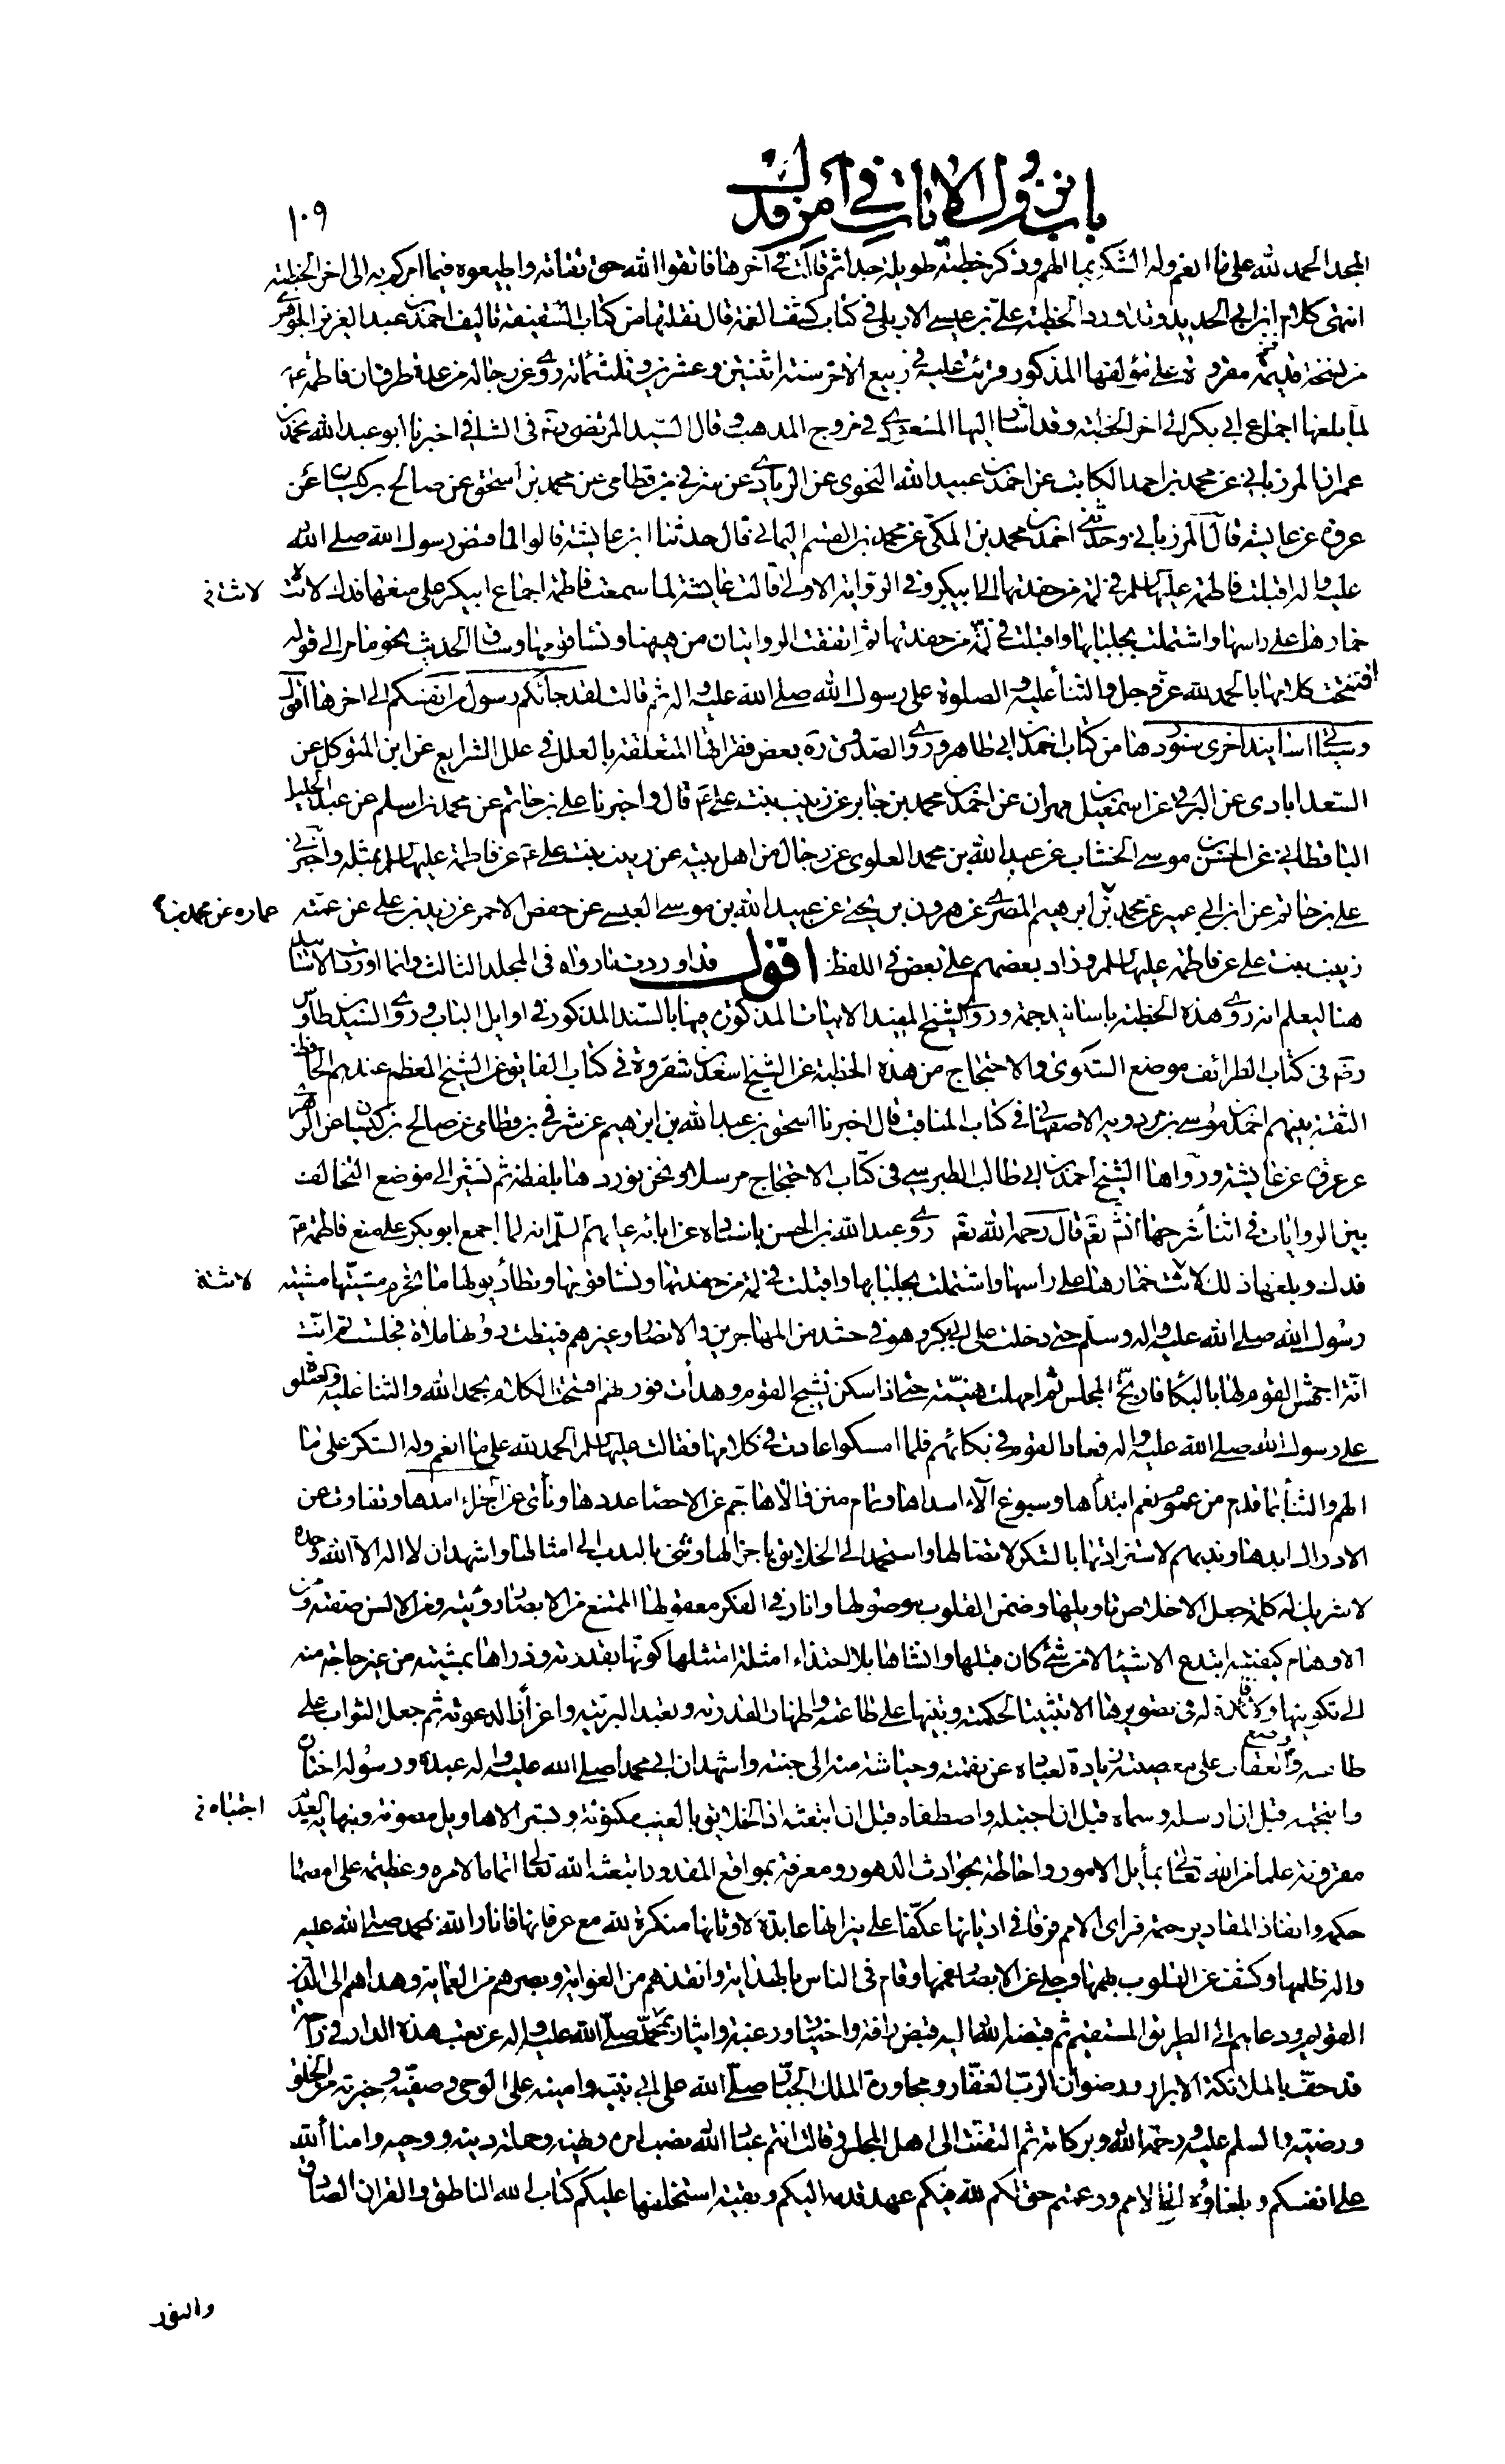 باب نزول الآيات في أمر فدك
١٠٩
المجد الحمد لله على ما انعم وله الشكر بما الهم وذكر خطبة طويلة جدا ثم قالت في آخرها فاتقوا الله حق تقاته واطيعوه فيما امركم به الى اخر الخطبة
انتهى كلام ابن ابي الحديد وقد اورد الخطبة علي بن عيسى الاربلي في كتاب كشف الغمة قال نقلتها من كتاب السقيفة تاليف احمد بن عبد العزيز الجوهري
من نسخة قديمة مقروة على مؤلفها المذكور قرئت عليه في ربيع الاخر سنة اثنتين وعشرين وثلثمائة روى عن رجاله من عدة طرق ان فاطمة ع
لما بلغها اجماع ابي بكر الى اخر الخطبة وقد اشار اليها المسعودي في مروج الذهب وقال السيد المرتضى ره في الشافي اخبرنا ابو عبد الله محمد بن
عمران المرزباني عن محمد بن احمد الكاتب عن احمد بن عبيد الله النحوي عن الزيادي عن شرقي بن قطامي عن محمد بن اسحق عن صالح بن كيسان عن
عروة عن عايشة قال المرزباني وحدثني احمد بن محمد بن المكي عن محمد بن القسم اليماني قال حدثنا ابن عايشة قالوا لما قبض رسول الله صلى الله
عليه واله اقبلت فاطمة عليها السلم في لمة من حفدتها الى ابي بكر وفي الرواية الاولى قالت عايشة لما سمعت فاطمة اجماع ابي بكر على منعها فدك لاثت
لاثت خ
خمارها على راسها واشتملت بجلبابها واقبلت في لمة من حفدتها ثم اتفقت الروايتان من ههنا ونساء قومها وساق الحديث نحو ما مر الى قوله
افتتحت كلامها بالحمد لله عز وجل والثناء عليه والصلوة على رسول الله صلى الله عليه واله ثم قالت لقد جائكم رسول من انفسكم الى اخرها اقول
وسيأتي اسانيد اخرى سنوردها من كتاب احمد بن ابي طاهر وروى الصدوق ره بعض فقراتها المتعلقة بالعلل في علل الشرايع عن ابن المتوكل عن
السعدابادي عن البرقي عن اسمعيل بن مهران عن احمد بن محمد بن جابر عن زينب بنت علي ع قال واخبرنا علي بن حاتم عن محمد بن اسلم عن عبد الجليل
الباقطاني عن الحسن بن موسى الخشاب عن عبد الله بن محمد العلوي عن رجال من اهل بيته عن زينب بنت علي ع عن فاطمة عليها السلم بمثله واخبرني
علي بن حاتم عن ابن ابي عمير عن محمد بن ابرهيم المصري عن هرون بن يحيى عن عبيد الله بن موسى العبسي عن حفص الاحمر عن زيد بن علي عن عمته
عماره عن محمد بن
زينب بنت علي عن فاطمة عليها السلم وزاد بعضهم على بعض في اللفظ اقول قد اوردت ما رواه في المجلد الثالث وانما اوردت الاسانيد
هنا ليعلم انه روى هذه الخطبة باسانيد جمة وروى الشيخ المفيد الابيات المذكورة فيها بالسند المذكور في اوايل الباب وروى السيد بن طاوس
رضه في كتاب الطرائف موضع الشكوى والاحتجاج من هذه الخطبة عن الشيخ اسعد بن شقروة في كتاب الفايق عن الشيخ المعظم عندهم الحافظ
الثقة بينهم احمد بن موسى بن مردويه الاصفهاني في كتاب المناقب قال اخبرنا اسحق بن عبد الله بن ابرهيم عن شرقي بن قطامي عن صالح بن كيسان عن الزهري
عن عروة عن عايشة ورواها الشيخ احمد بن ابي طالب الطبرسي في كتاب الاحتجاج مرسلا ونحن نوردها بلفظه ثم نشير الى موضع التخالف
بين الروايات في اثناء شرحها انشاء الله تع قال رحمه الله تع روى عبد الله بن الحسن باسناده عن ابائه عليهم السلم انه لما اجمع ابو بكر على منع فاطمة ع
فدك وبلغها ذلك لاثت خمارها على راسها واشتملت بجلبابها واقبلت في لمة من حفدتها ونساء قومها وتطأ ذيولها ما تخرم مشيتها مشية
لاثة
رسول الله صلى الله عليه واله وسلم حتى دخلت على ابي بكر وهو في حشد من المهاجرين والانصار وغيرهم فنيطت دونها ملاة فجلست ثم انت
انة اجهش القوم لها بالبكا فارتج المجلس ثم امهلت هنيئة حتى اذا سكن نشيج القوم وهدأت فورتهم افتتحت الكلام بحمد الله والثنا عليه والصلوة
على رسول الله صلى الله عليه واله فعاد القوم في بكائهم فلما امسكوا عادت في كلامها فقالت عليها السلم الحمد لله على ما انعم وله الشكر على ما
الهم والثناء بما قدم من عموم نعم ابتدأها وسبوغ آلاء اسداها وتمام منن والاها جم عن الاحصاء عددها ونأى عن الجزاء امدها وتفاوت عن
الادراك ابدها وندبهم لاستزادتها بالشكر لاتصالها واستحمد الى الخلايق باجزالها وثنى بالندب الى امثالها واشهد ان لا اله الا الله وحده
لا شريك له كلمة جعل الاخلاص تاويلها وضمن القلوب موصولها وانار في الفكر معقولها الممتنع من الابصار رؤيته ومن الالسن صفته ومن
الاوهام كيفيته ابتدع الاشيا لا من شئ كان قبلها وانشاها بلا احتذاء امثلة امتثلها كونها بقدرته وذراها بمشيته من غير حاجة منه
الى تكوينها ولا فائدة له في تصويرها الا تثبيتا لحكمته وتنبيها على طاعته واظهارا لقدرته وتعبدا لبريته واعزازا لدعوته ثم جعل الثواب على
طاعته ووضع العقاب على معصيته زيادة لعباده عن نقمته وحياشة منه الى جنته واشهد ان ابي محمدا صلى الله عليه واله عبده ورسوله اختاره
وانتجبه قبل ان ارسله وسماه قبل ان اجتبله واصطفاه قبل ان ابتعثه اذ الخلايق بالغيب مكنونة وبستر الاهاويل مصونة وبنهاية العدم
اجتباه خ
مقرونة علما من الله تعالى بمآيل الامور واحاطة بحوادث الدهور ومعرفة بمواقع المقدور ابتعثه الله تعالى اتماما لامره وعظيمة على امضا
حكمه وانفاذ المقادير حتمه فراى الامم فرقا في اديانها عكفا على نيرانها عابدة لاوثانها منكرة لله مع عرفانها فانار الله بمحمد صلى الله عليه
واله ظلمها وكشف عن القلوب بهمها وجلى عن الابصار عمها وقام في الناس بالهداية وانقذهم من الغواية وبصرهم من العماية وهداهم الى الدين
القويم ودعاهم الى الطريق المستقيم ثم قبضه الله اليه قبض رافة واختيار ورغبة وايثار بمحمد صلى الله عليه واله عن تعب هذه الدار في راحة
قد حف بالملائكة الابرار ورضوان الرب الغفار ومجاورة الملك الجبار صلى الله على ابي نبيه وامينه على الوحي وصفيه وخيرته من الخلق
ورضيه والسلم عليه ورحمة الله وبركاته ثم التفتت الى اهل المجلس وقالت انتم عباد الله نصب امره ونهيه وحملة دينه ووحيه وامناء الله
على انفسكم وبلغاؤه الى الامم وزعمتم حق لكم لله فيكم عهد قدمه اليكم وبقية استخلفها عليكم كتاب الله الناطق والقران الصادق
والنور